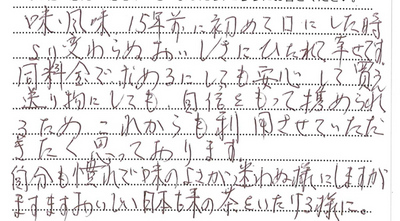 味・風味 15年前に初めて口にした時
より変わらぬおいしさにひたれて幸せです
同料金で求めるにしても安心して買え
送り物にしても自信をもって薦められ
るため これからも利用させていただ
きたく思っております
自分も慣れで味のよさから迷わぬ様にしますが
ますますおいしい日本古来の茶をいたりする様に。